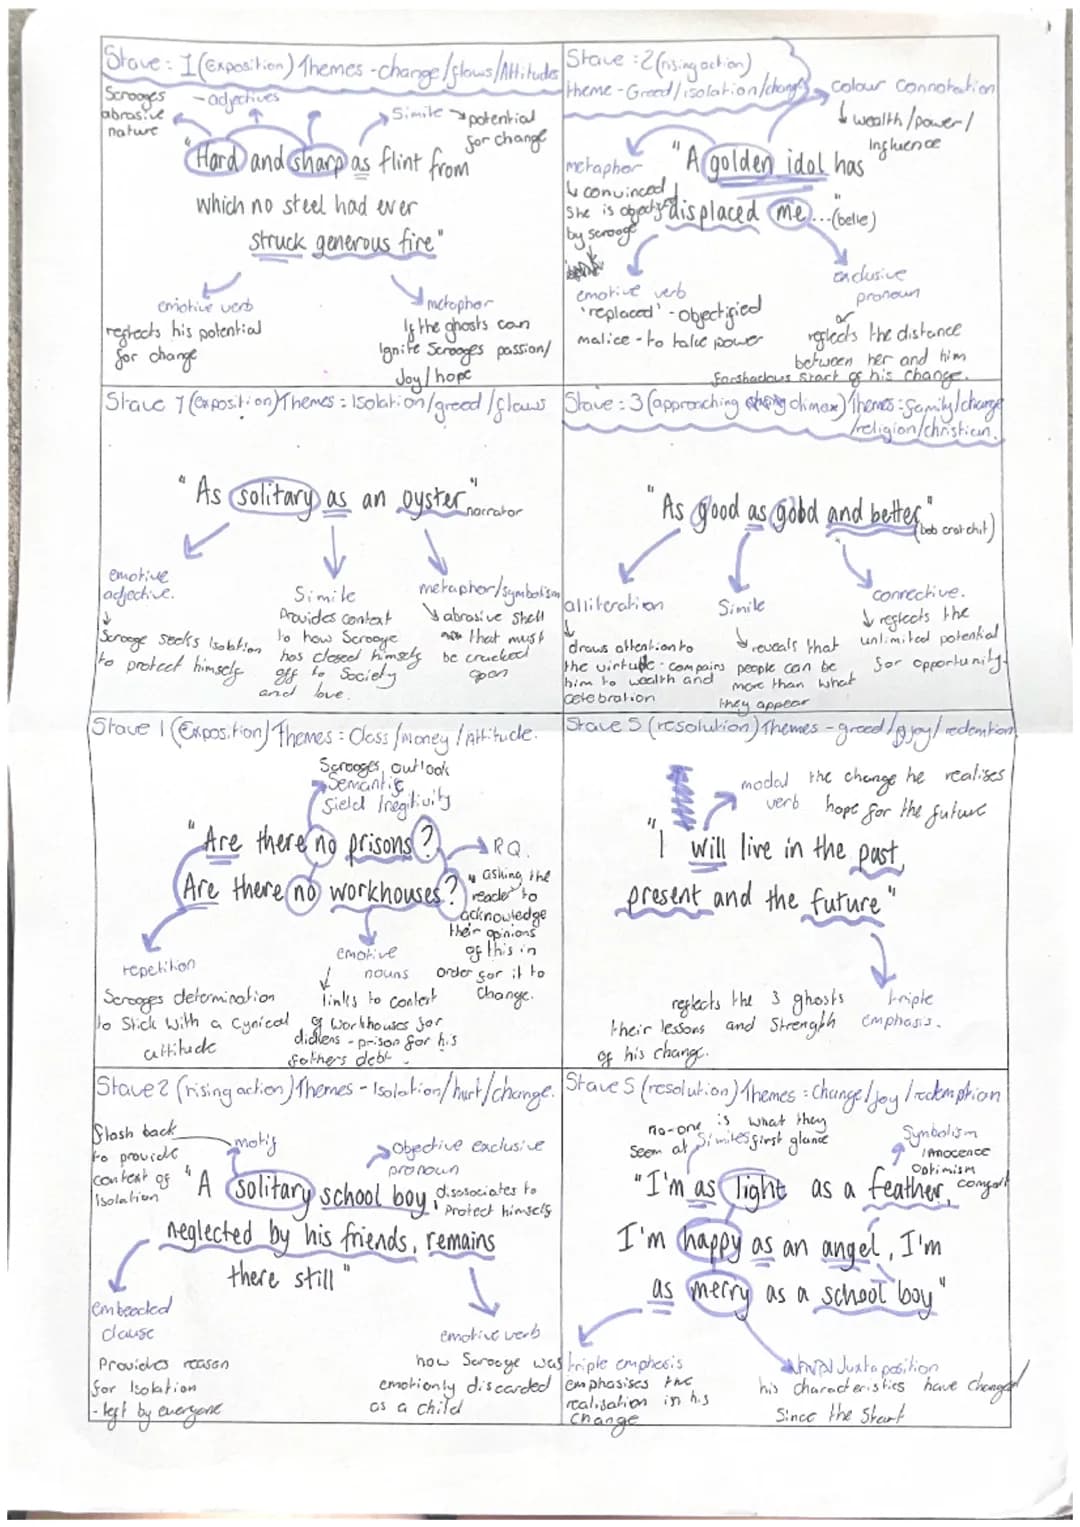 Stave: 1 (Exposition) Themes - change/flaws/Attitudes
Scrooges
abrasive
nature
- adjectives
Simile → potential
for change
"Hard and sharp as flint from
which no steel had ever
struck generous fire"
emotive verb
reflects his potential
for change
metaphor
If the ghosts can
Ignite Scrooges passion/
Joy/hope
Stave :2 (rising action)
theme - Greed/isolation/change
colour connotation
wealth/power/
Influence
metaphor
convinced
She is objectified
by scrooge
"A golden idol has
displaced me..." (belle)
emotive verb
'replaced' - objectified
malice - to take power
exclusive
pronoun
or
reflects the distance
between her and him
forshadows start of his change.
Stave 1 (exposition) Themes : Isolation/greed/flaws
"As solitary as an oyster"
narrator
emotive
adjective.
Scrooge seeks Isolation
to protect himself
Simile
Provides context
to how Scrooge
has closed himself
off to Society
and love.
metaphor/symbolism
abrasive shell
that must
be cracked
open
Stave : 3 (approaching climax) Themes : family/change
/religion/christian.
"As good as gold and better"
(bob cratchit)
alliteration
draws attention to
the virtue - compairs
him to wealth and
celebration
Simile
reveals that
people can be
more than what
they appear
connective.
reflects the
unlimited potential
for opportunity.
Stave 1 (Exposition) Themes : Class/money/Attitude.
Scrooges outlook
Semantic
field Inegitivity
"Are there no prisons?
Are there no workhouses?"
RQ.
asking the
reader to
acknowledge
their opinions
of this in
order for it to
change.
repetition
Scrooges determination
to Stick with a Cynical
attitude
emotive
nouns
links to context
of workhouses for
dickens - prison for his
fathers debt.
Stave 5 (resolution) Themes - greed/joy/redemption
modal
verb
the change he realises
hope for the future
"I will live in the past,
present and the future"
reflects the 3 ghosts
their lessons and Strength
of his change.
triple
emphasis.
Stave 2 (rising action) Themes - Isolation/hurt/change.
flash back
to provide
context of
Isolation
motif
Objective exclusive
pronoun
disosociates to
protect himself
"A solitary school boy,
neglected by his friends, remains
there still"
embeaded
clause
Provides reason
for Isolation
- left by everyone
emotive verb
how Scrooge was
emotionly discarded
as a child
Stave 5 (resolution) Themes : Change/joy/redemption
no-one is what they
seem at first glance
Similes
Symbolism
innocence
Optimism
comfort
"I'm as light as a feather,
I'm happy as an angel, I'm
as merry as a school boy"
triple emphasis
emphasises the
realisation in his
change
Juxtaposition
his characteristics have changed
Since the Start